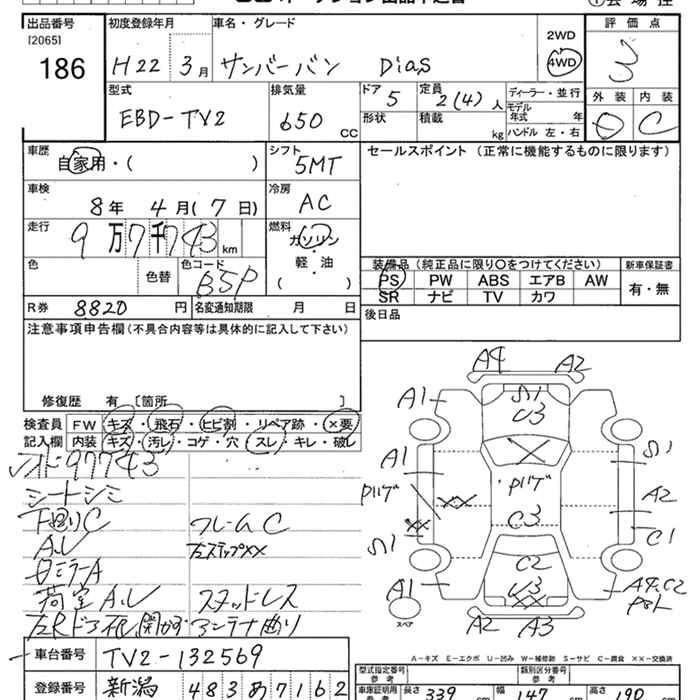 出品番号
[2065]
186
初度登録年月
H22 3月
車名・グレード
サンバーバン Dias
2WD
4WD
評価点
3
型式
EBD-TV2
排気量
650 CC
ドア 5
定員 2(4)人
形状
積載 kg
ディーラー・並行
モデル年式 年
ハンドル 左・右
外装 内装
D C
車歴
自家用・( )
シフト
5MT
セールスポイント (正常に機能するものに限ります)
車検
8年 4月(7日)
冷房
AC
走行
9万7千743km
燃料
ガソリン・軽・油
( )
色
色替
色コード
B5P
装備品(純正品に限り〇をつけてください)
新車保証書
PS PW ABS エアB AW
SR ナビ TV カワ
有・無
R券 8820円
名変通知期限 月 日
後日品
注意事項申告欄(不具合内容等は具体的に記入して下さい)
修復歴 有 [箇所 ]
検査員記入欄
FW キズ・飛石・ヒビ割・リペア跡・×要
内装 キズ・汚レ・コゲ・穴・スレ・キレ・破レ
メオド97743
シートシミ
下回りC フレームC
A,U 左ステップ××
日ミラーA
荷室A,U スタッドレス
左Rドア 開かず アンテナ曲り
A4 A2
A1 S1
U3
A1 S1
Pハゲ ・Pハゲ
×× A2
×× C3
S1 C1
C2
A1 U3 A4,C2
××
A2 A3
スペア
車台番号 TV2-132569
A-キズ E-エクボ U-凹み W-補修跡 S-サビ C-腐食 ××-交換済
型式指定番号 参考
類別区分番号 参考
登録番号 新潟 483あ7162
車庫証明用 参考
長さ 339 cm 幅 147 cm 高さ 190 cm